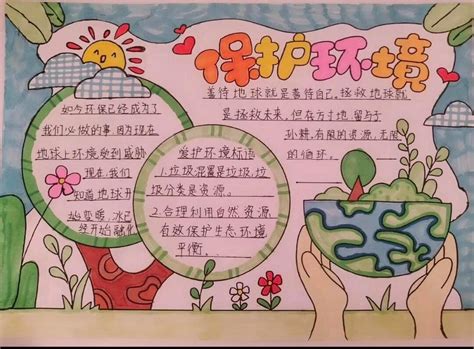 保护环境
善待地球就是善待自己,拯救地球就
是拯救未来,但有方寸地留与子
孙耕,有限的资源,无限
的循环。
如今环保已经成为了
我们必做的事,因为现在
地球上环境受到威胁
现在,我们
知道地球开
始变暖,冰已
经开始融化
爱护环境标语
1.垃圾混置是垃圾,垃
圾分类是资源。
2.合理利用自然资源
有效保护生态环境
平衡。